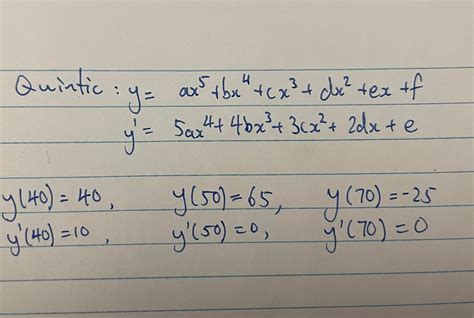 Quintic : y = ax⁵ + bx⁴ + cx³ + dx² + ex + f
y' = 5ax⁴ + 4bx³ + 3cx² + 2dx + e
y(40) = 40, y(50) = 65, y(70) = -25
y'(40) = 10, y'(50) = 0, y'(70) = 0